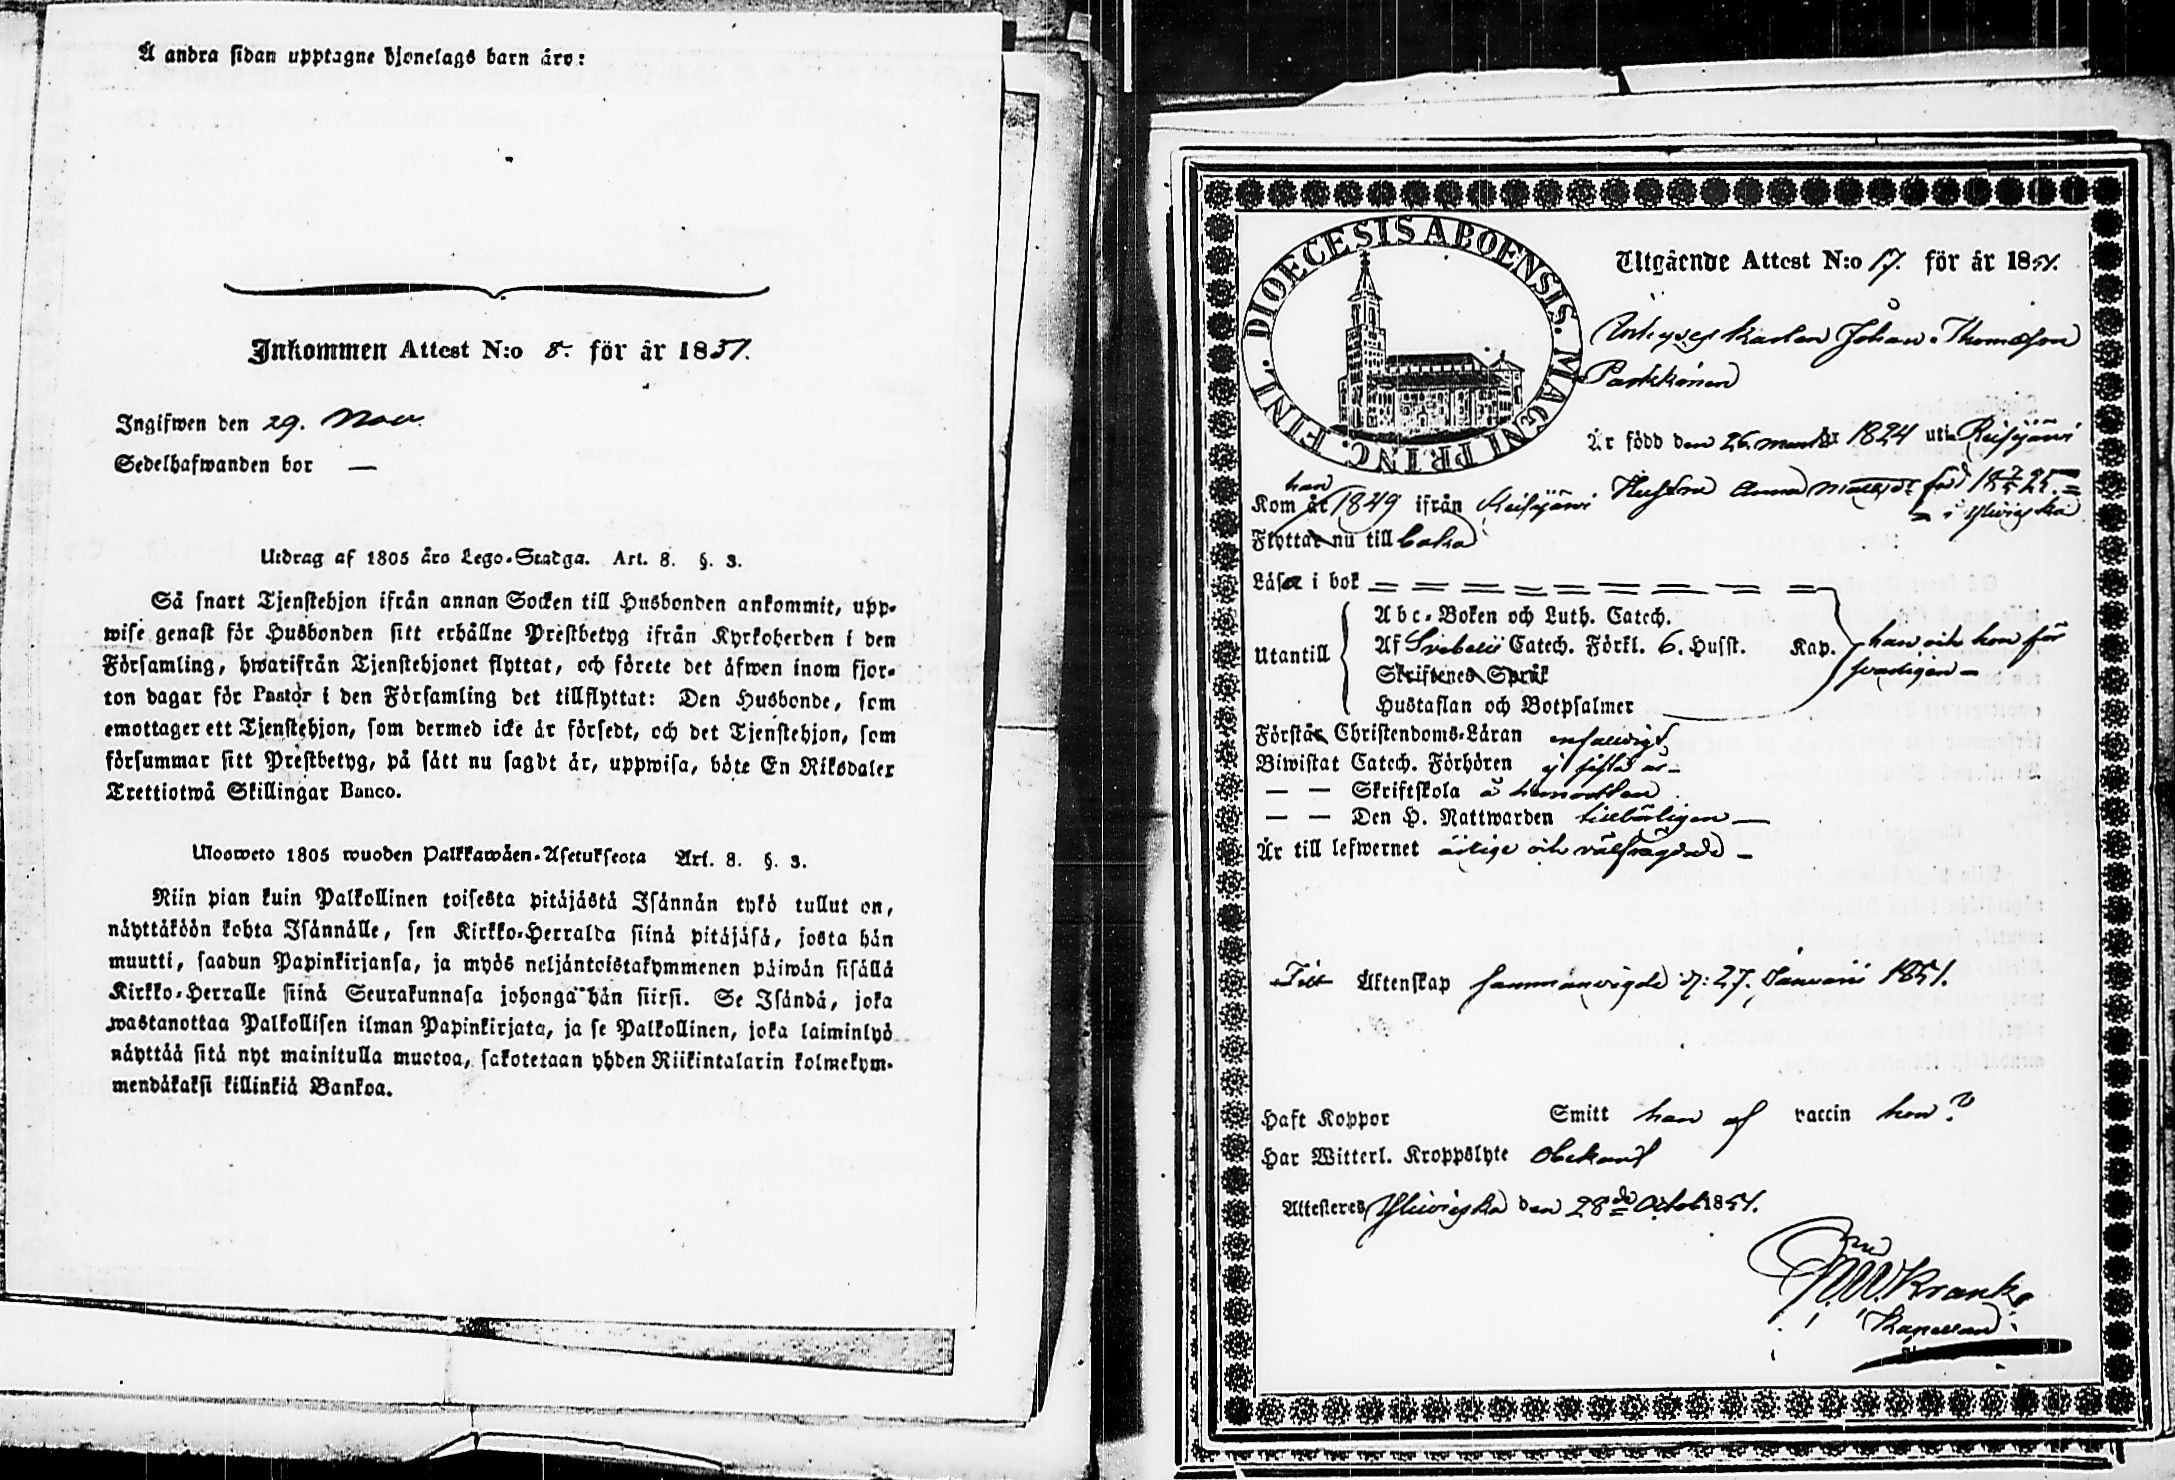 Å andra sidan upptagne hjonelags barn äro:
Inkommen Attest N:o 8. för år 1851.
Ingifwen den 29. Nov.
Sedelhafwanden bor —
Utdrag af 1805 års Lego-Stadga. Art. 8. §. 3.
Så snart Tjenstehjon ifrån annan Socken till Husbonden ankommit, upp-
wise genast för Husbonden sitt erhållne Prestbetyg ifrån Kyrkoherden i den
Församling, hwarifrån Tjenstehjonet flyttat, och förete det äfwen inom fjor-
ton dagar för Pastor i den Församling det tillflyttat: Den Husbonde, som
emottager ett Tjenstehjon, som dermed icke är försedt, och det Tjenstehjon, som
försummar sitt Prestbetyg, på sätt nu sagdt är, uppwisa, böte En Riksdaler
Trettiotwå Skillingar Banco.
Ulosweto 1805 wuoden Palkkawäen-Asetuksesta Art. 8. §. 3.
Niin pian kuin Palkollinen toisesta pitäjästä Isännän tykö tullut on,
näyttäköön kohta Isännälle, sen Kirkko-Herralda siinä pitäjäsä, josta hän
muutti, saadun Papinkirjansa, ja myös neljäntoistakymmenen päiwän sisällä
Kirkko-Herralle siinä Seurakunnasa johonga hän siirsi. Se Isändä, joka
wastanottaa Palkollisen ilman Papinkirjata, ja se Palkollinen, joka laiminlyö
näyttää sitä nyt mainitulla muotoa, sakotetaan yhden Riikintalarin kolmekym-
mendäkaksi killinkiä Bankoa.
DIOECESIS ABOENSIS. MAGNI PRINC. FINL.
Utgående Attest N:o 17. för år 1851.
Johan Thomasson
Parkkonen
Är född den 26. mars år 1824 uti Reisjärvi
han
Kom år 1849 ifrån Reisjärvi Hustru Anna Matts dr född 1825
i Ylivieska
Flyttar nu till baka
Läser i bok
Abc-Boken och Luth. Catech.
Utantill Af Svebelii Catech. Förkl. 6. Husst. Kap. han och hon för
Skriftenes Språk svarligen —
Hustaflan och Botpsalmer
Förstår Christendoms-Läran enfaldigt
Biwistat Catech. Förhören
— — Skriftskola
— — Den H. Nattwarden tillbörligen —
Är till lefwernet ärlige och välfrägdade —
Till Äktenskap sammanvigde d. 27. Januarii 1851.
Haft Koppor Smitt han af vaccin hon?
Har Witterl. Kroppslyte Obekant
Attesteres Ylivieska den 28de Octob. 1851.
Kranck
Kapellan